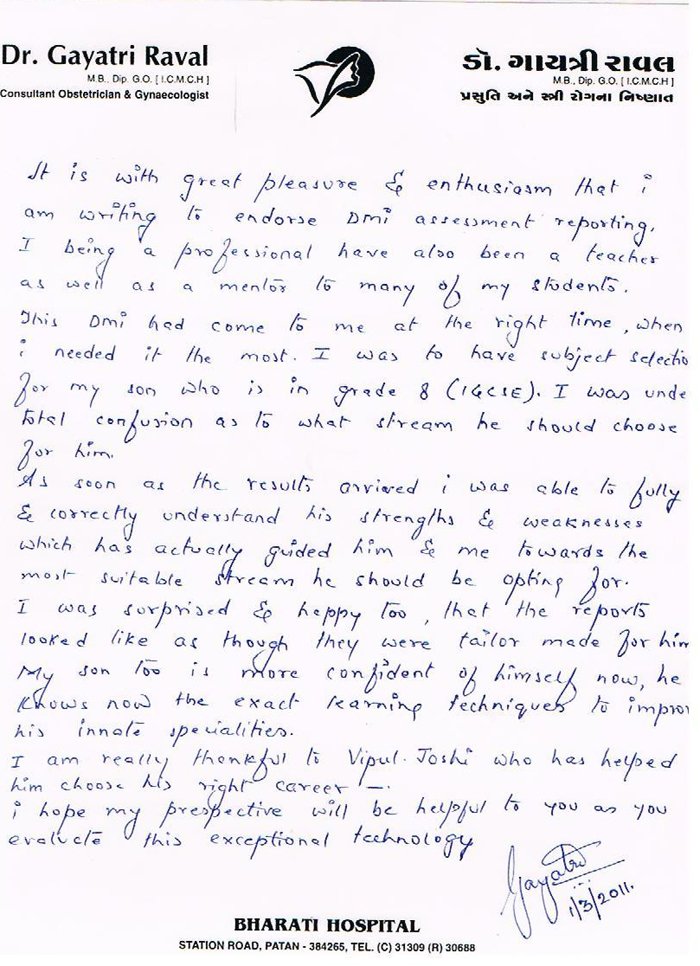 Dr. Gayatri Raval
M.B., Dip. G.O. [ I.C.M.C.H ]
Consultant Obstetrician & Gynaecologist
ડૉ. ગાયત્રી રાવલ
M.B., Dip. G.O. [I.C.M.C.H]
પ્રસુતિ અને સ્ત્રી રોગના નિષ્ણાત
It is with great pleasure & enthusiasm that i
am writing to endorse DMi assessment reporting.
I being a professional have also been a teacher
as well as a mentor to many of my students.
This DMi had come to me at the right time, when
i needed it the most. I was to have subject selectio
for my son who is in grade 8 (IGCSE). I was unde
total confusion as to what stream he should choose
for him.
As soon as the results arrived i was able to fully
& correctly understand his strengths & weaknesses
which has actually guided him & me towards the
most suitable stream he should be opting for.
I was surprised & happy too, that the reports
looked like as though they were tailor made for him
My son too is more confident of himself now, he
knows now the exact learning techniques to impro
his innate specialities.
I am really thankful to Vipul. Joshi who has helped
him choose his right career —.
i hope my prespective will be helpful to you as you
evaluate this exceptional technology
Gayatri
1/3/2011.
BHARATI HOSPITAL
STATION ROAD, PATAN - 384265, TEL. (C) 31309 (R) 30688